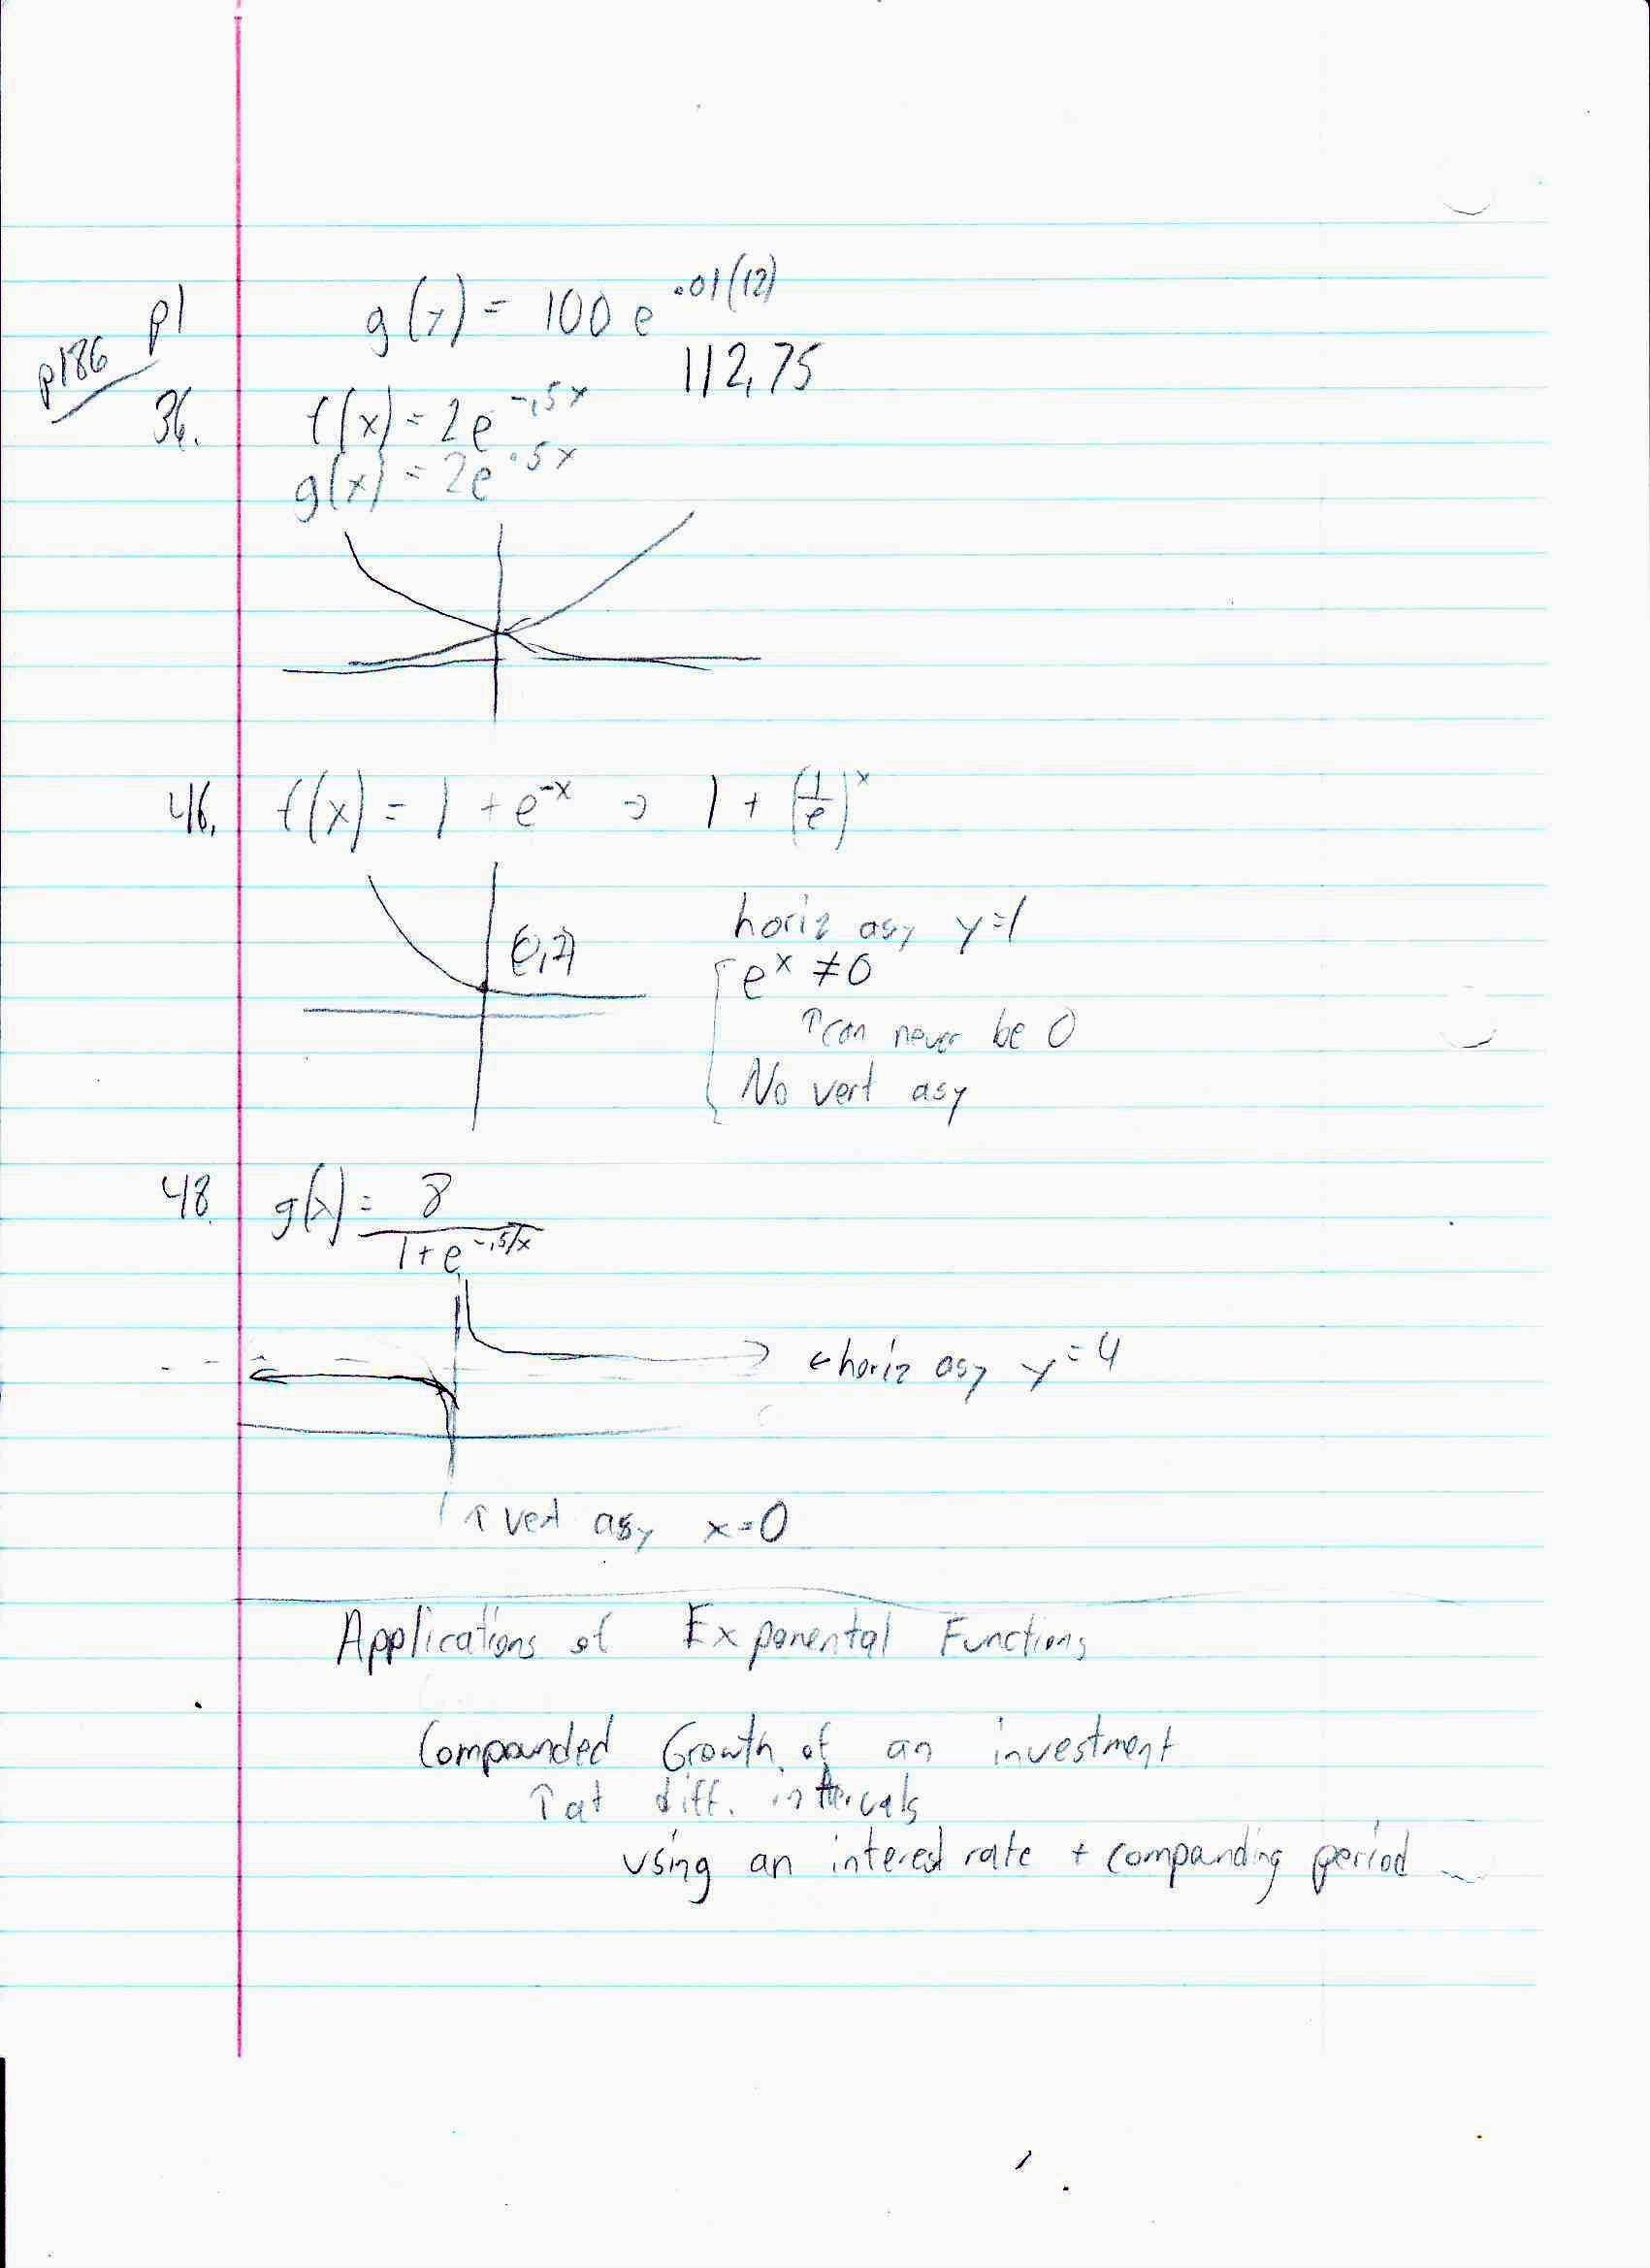 p186 p1 g(x) = 100 e^.01(12)
112.75
36. f(x) = 2e^-.5x
g(x) = 2e^.5x
46. f(x) = 1 + e^-x → 1 + (1/e)^x
(0,2)
horiz asy y=1
e^x ≠ 0
↑ can never be 0
No vert asy
48. g(x) = 8/(1+e^-.5/x)
← horiz asy y=4
↑ vert asy x=0
Applications of Exponental Functions
Compounded Growth of an investment
↑ at diff. intervals
using an interest rate + compounding period